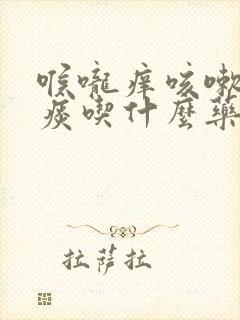 喉嚨痒咳嗽
痰喫什麼藥
拉薩拉